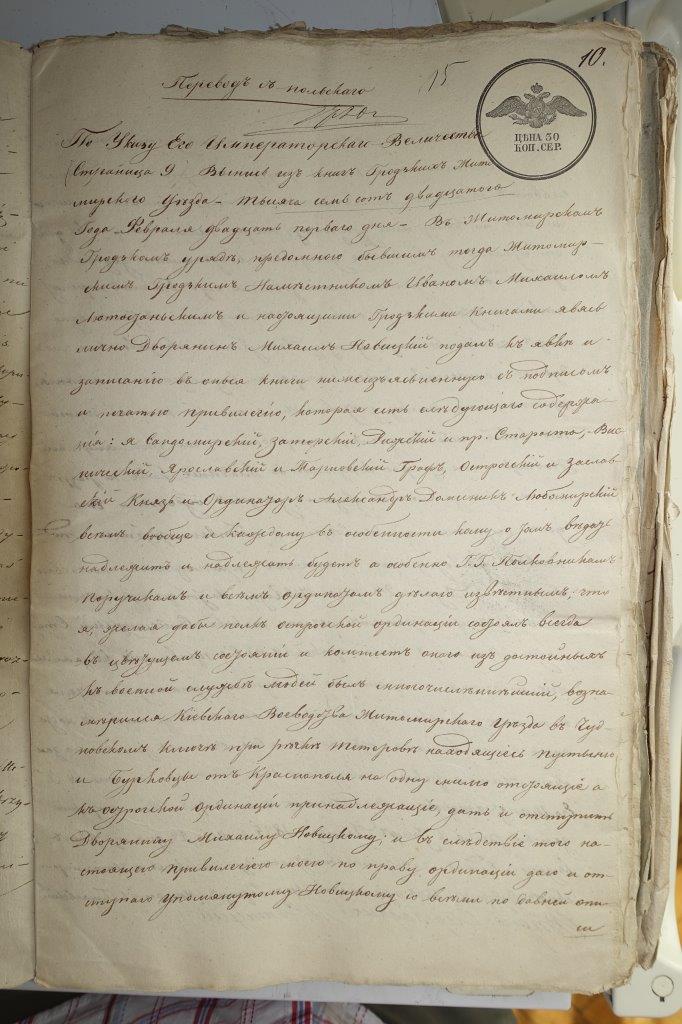 10.
15
Переводъ съ польскаго
ЦѢНА 30
КОП. СЕР.
По Указу Его Императорскаго Величества
(Страница 9 Выпись изъ книгъ Гродскихъ Жито-
мирскаго Уѣзда – тысяча семь сотъ двадцатого
Года Февраля двадцать перваго дня – Въ Житомирскомъ
Гродскомъ урядѣ, предомною бывшимъ тогда Житомир-
скимъ Гродскимъ Намѣстникомъ Иваномъ Михаиломъ
и настоящими Гродскими Книгами явясь
лично Дворянинъ Михаилъ Новицкій подалъ къ явкѣ и
записанію въ оныя книги нижеизъясненную съ подписомъ
и печатью привилегію, которая есть слѣдующаго содержа-
нія: я Сандомирскій, Заторскій, и пр. Староста, Вис-
ничскій, Ярославскій и Графъ, Острогскій и Заслав-
скій Князь и Ординаторъ Александръ Доминикъ Любомирскій
всѣмъ вообще и каждому въ особенности кому о томъ вѣдать
надлежитъ и надлежать будетъ а особенно Г.Г. Полковникамъ
Поручикамъ и всѣмъ ординатамъ дѣлаю извѣстнымъ, что
я, желая дабы полкъ Острогской ординаціи состоялъ всегда
въ цвѣтущемъ состояніи и комплетъ оного изъ достойныхъ
къ военной службѣ людей былъ многочисленнѣйшій, возна-
мѣрился Кіевскаго Воеводства Житомирскаго Уѣзда въ Чуд-
новскомъ ключѣ при рѣкѣ Тетеровѣ находящіеся пустынию
и Бурковцы отъ Краснополя на одну милю отстоящіе а
къ острогской ординаціи принадлежащіе, дать и отступить
Дворянину Михаилу Новицкому; и въ слѣдствіе того на-
стоящею привилегіею моею по праву ординаціи даю и от-
ступаю упомянутому Новицкому со всѣми по давней опи-
си